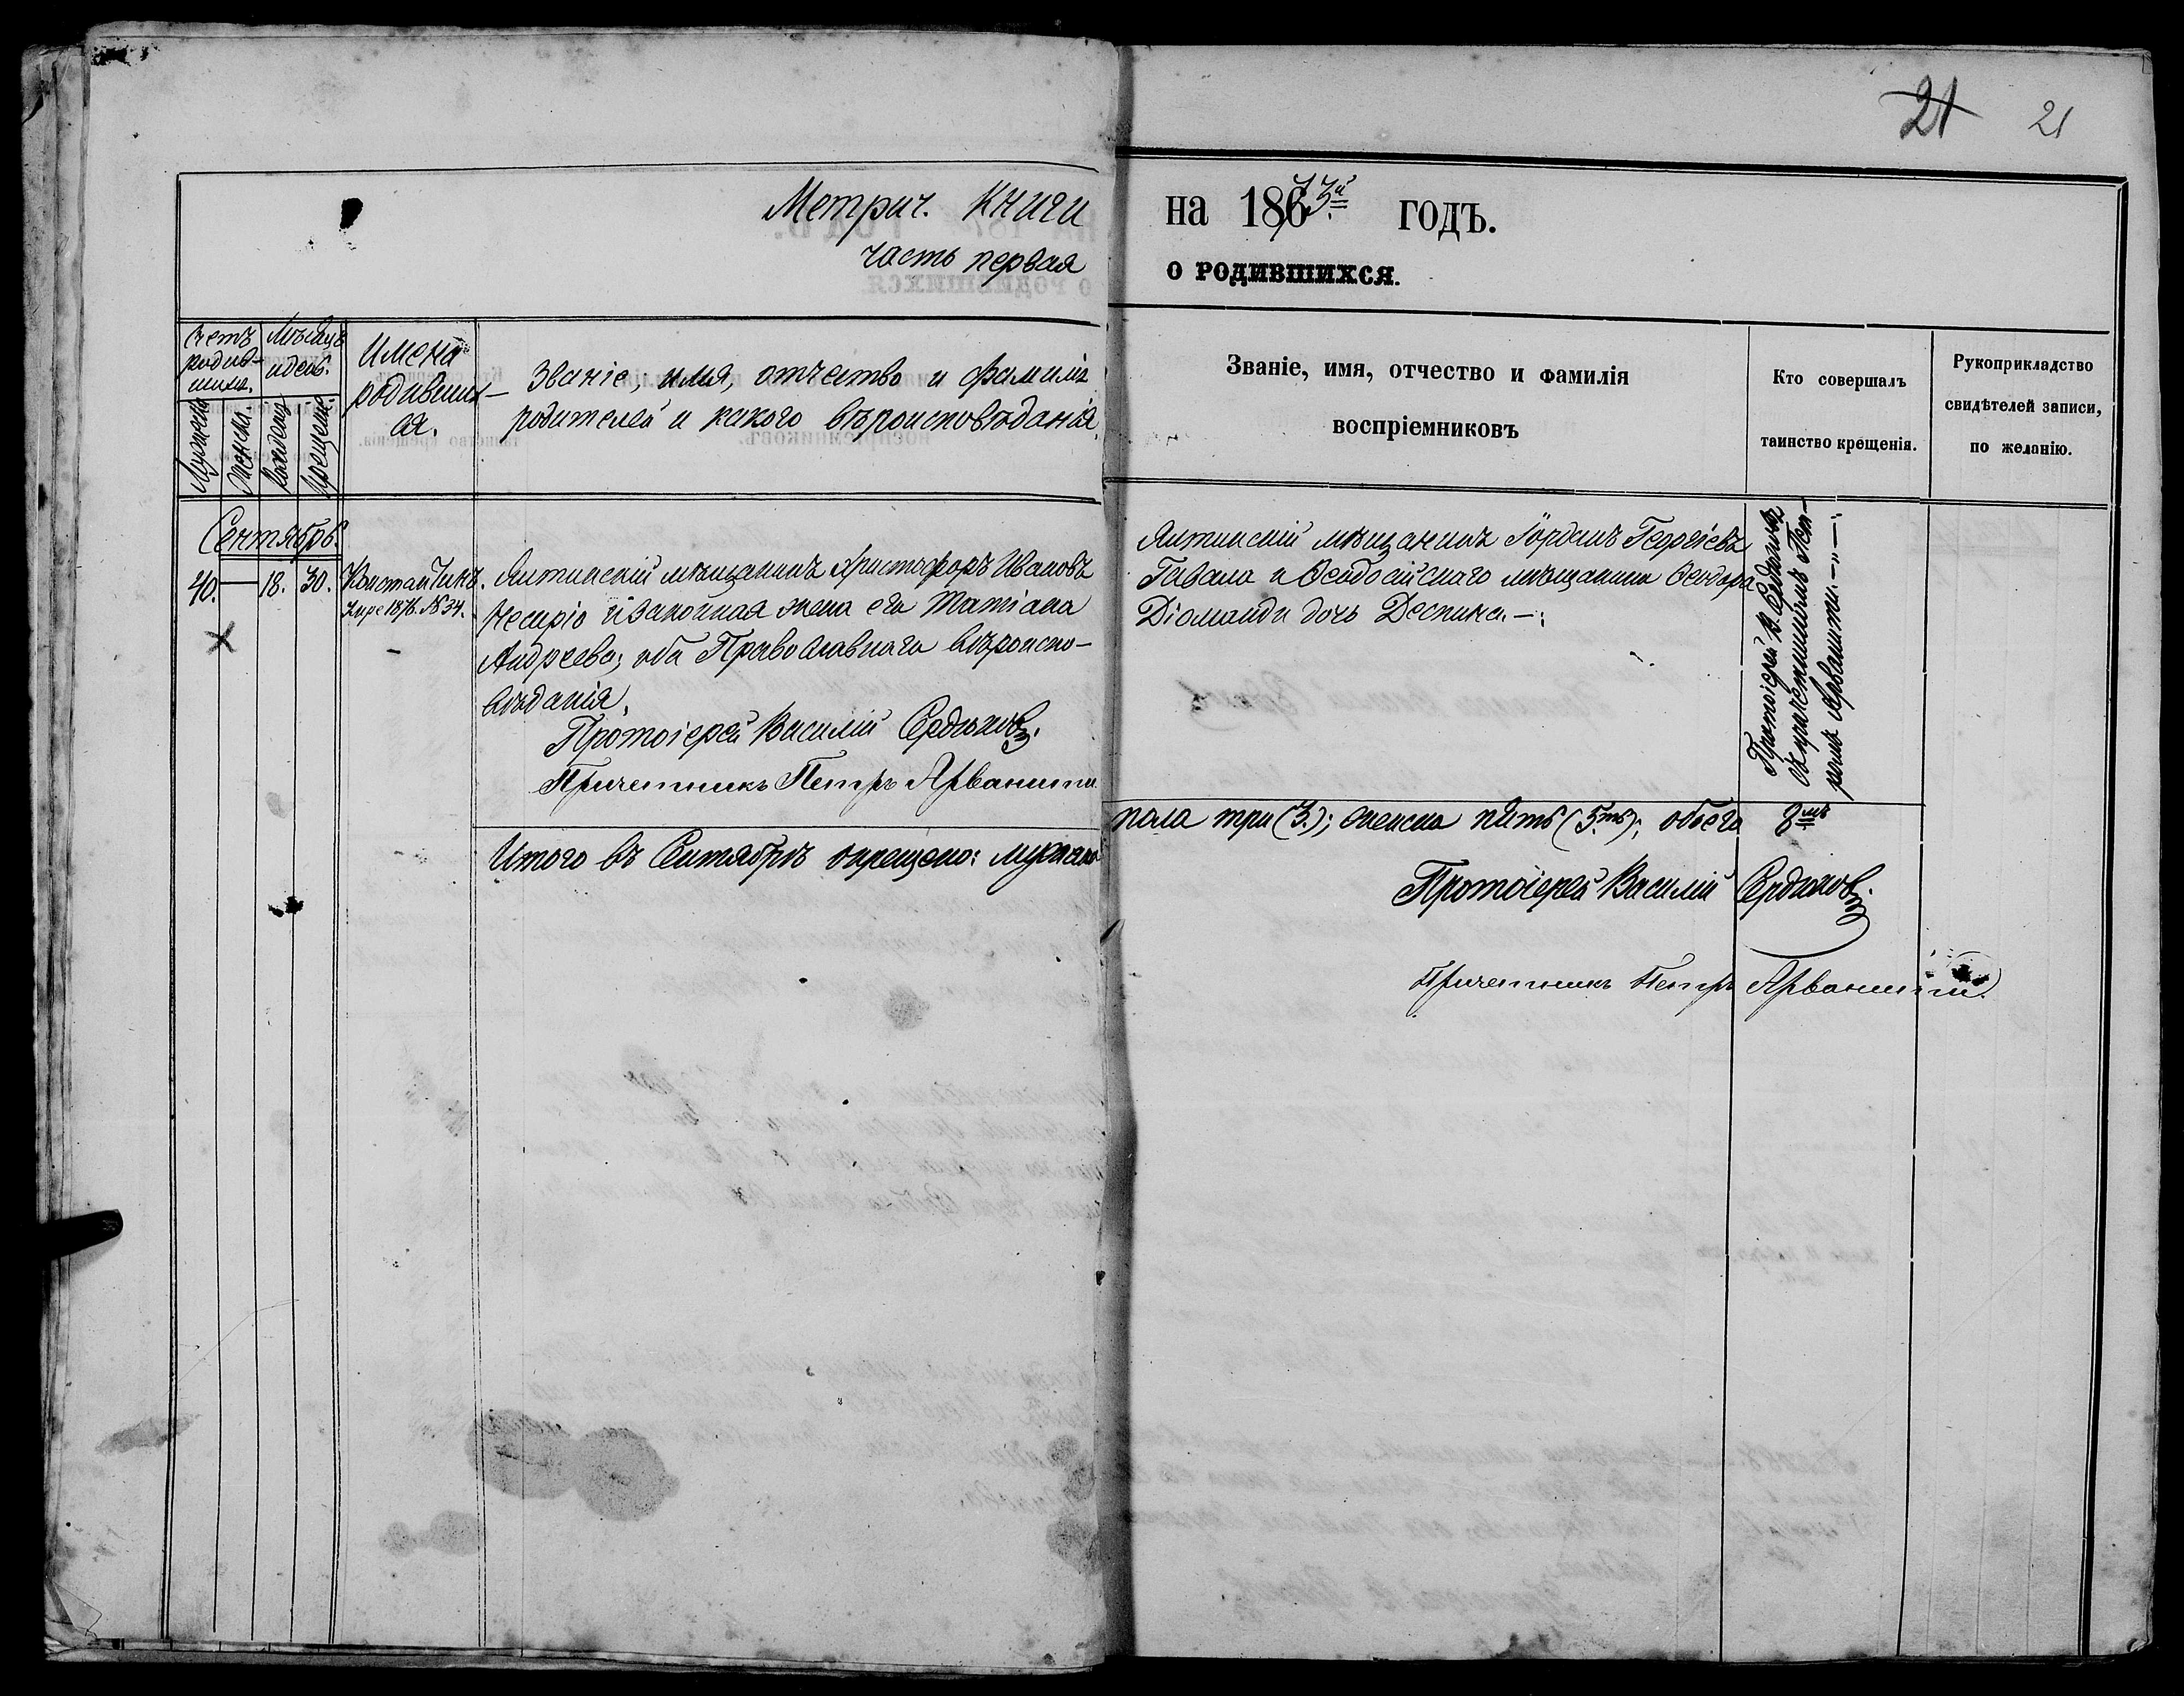 21 21
Метрич. книги на 1873й годъ.
часть первая о родившихся.
Счетъ родив-шихъ.
Мужеска.
Женска.
Мѣсяцъ и день.
Рожденія
Крещенія.
Имена
родивших-
ся.
Званіе, имя, отчество и фамилія
родителей и какого вѣроисповѣданія.
Званіе, имя, отчество и фамилія
воспріемниковъ
Кто совершалъ
таинство крещенія.
Рукоприкладство
свидѣтелей записи,
по желанію.
Сентябрь.
40. — 18. 30.
Константинъ.
1876. № 34.
Ялтинскій мѣщанинъ Христофоръ Ивановъ
и законная жена его Татіана
Андреева; оба Православнаго вѣроиспо-
вѣданія.
Протоіерей Василій Сердюковъ.
Причетникъ Петръ Арванити
Ялтинскій мѣщанинъ Іорданъ Георгіевъ
Гавала и Ѳеодосійскаго мѣщанина Ѳеодора
Діоманди дочь Деспина. —:
Протоіерей В. Сердюковъ
съ причетникомъ Пет-
ромъ Арванити. —„—:
Итого въ Сентябрѣ окрещено: мужеска
пола три (3.); женска пять (5ть); обоего 8мь
Протоіерей Василій Сердюковъ.
Причетникъ Петръ Арванити.